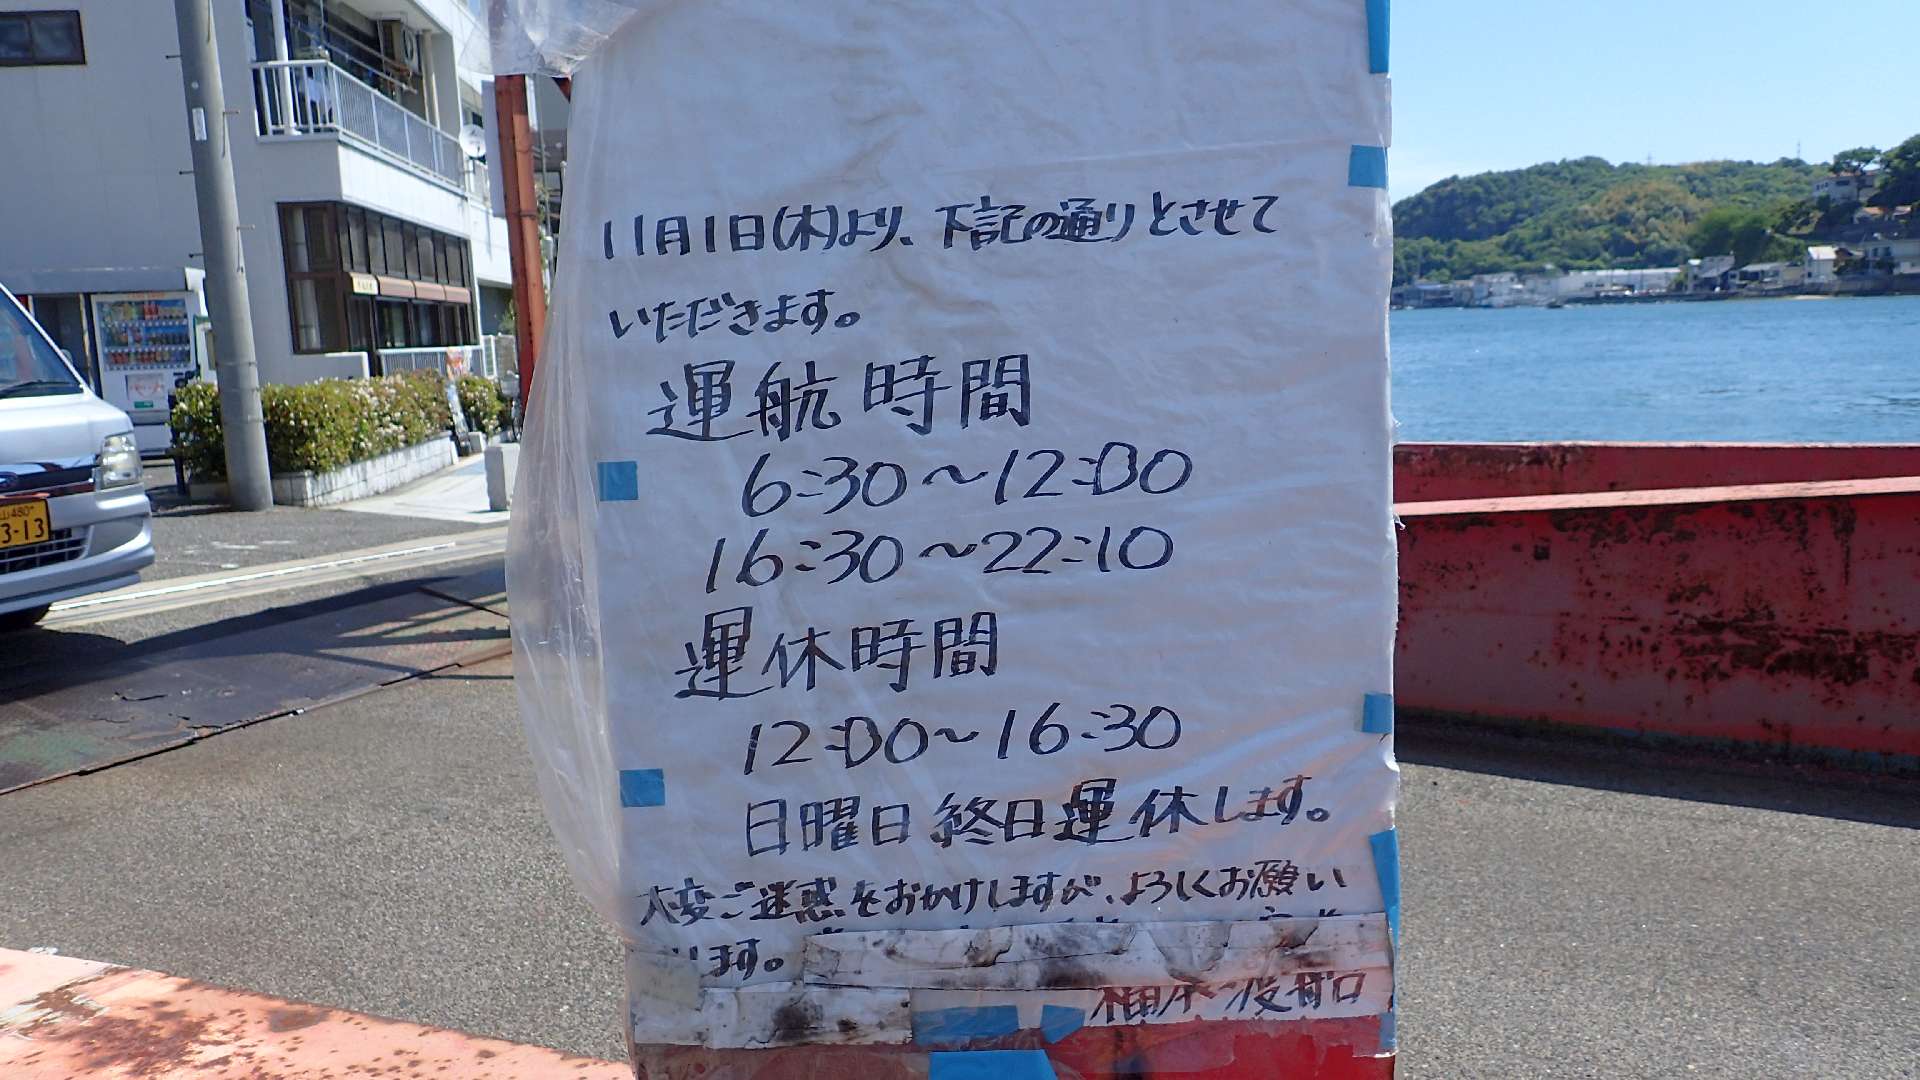 11月1日(木)より、下記の通りとさせて
いただきます。
運航時間
6:30〜12:00
16:30〜22:10
運休時間
12:00〜16:30
日曜日終日運休します。
大変ご迷惑をおかけしますが、よろしくお願い
します。
3-13